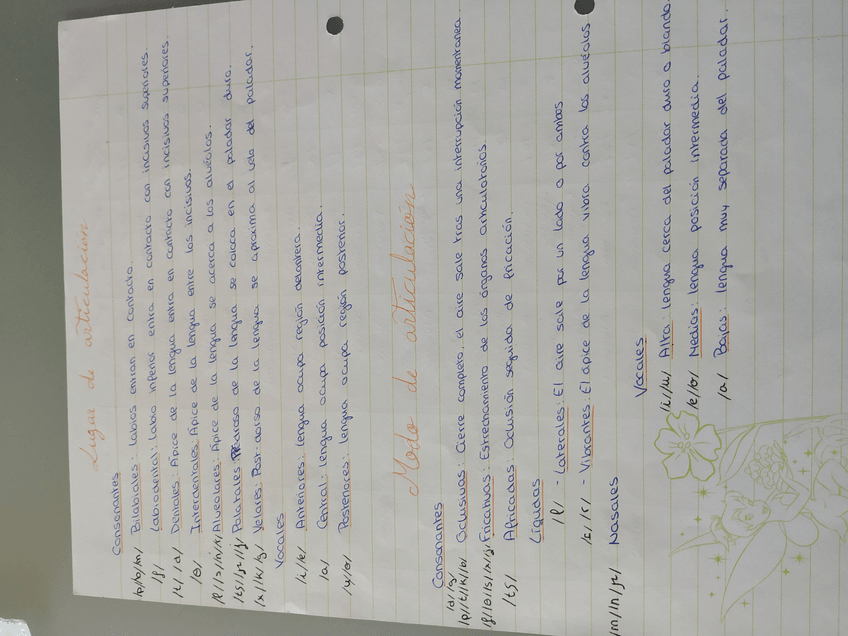 Lugar de articulación
Consonantes
/p/b/m/ Bilabiales: labios entran en contacto.
/f/ Labiodental: labio inferior entra en contacto con incisivos superiores
/t/ /d/ Dentales: Ápice de la lengua entra en contacto con incisivos superiores.
/θ/ Interdentales: Ápice de la lengua entre los incisivos.
Alveolares: Ápice de la lengua se acerca a los alvéolos.
Palatales: de la lengua se coloca en el paladar duro.
/x/ /k/ /g/ Velares: Post-dorso de la lengua se aproxima al velo del paladar.
Vocales
/i/ /e/ Anteriores: lengua ocupa región delantera.
/a/ Central: lengua ocupa posición intermedia.
/u/ /o/ Posteriores: lengua ocupa región posterior.
Modo de articulación
Consonantes
/d/ /g/
/p/ /t/ /k/ /b/ Oclusivas: Cierre completo, el aire sale tras una interrupción momentanea.
Fricativas: Estrechamiento de los órganos articulatorios.
/tʃ/ Africadas: Oclusión seguida de fricación.
Líquidas
/l/ - Laterales: El aire sale por un lado o por ambos
- Vibrantes: El ápice de la lengua vibra contra los alvéolos
/m/ /n/ /ɲ/ Nasales
Vocales
/i/ /u/ Alta: lengua cerca del paladar duro o blando.
/e/ /o/ Medias: lengua posición intermedia.
/a/ Bajas: lengua muy separada del paladar.